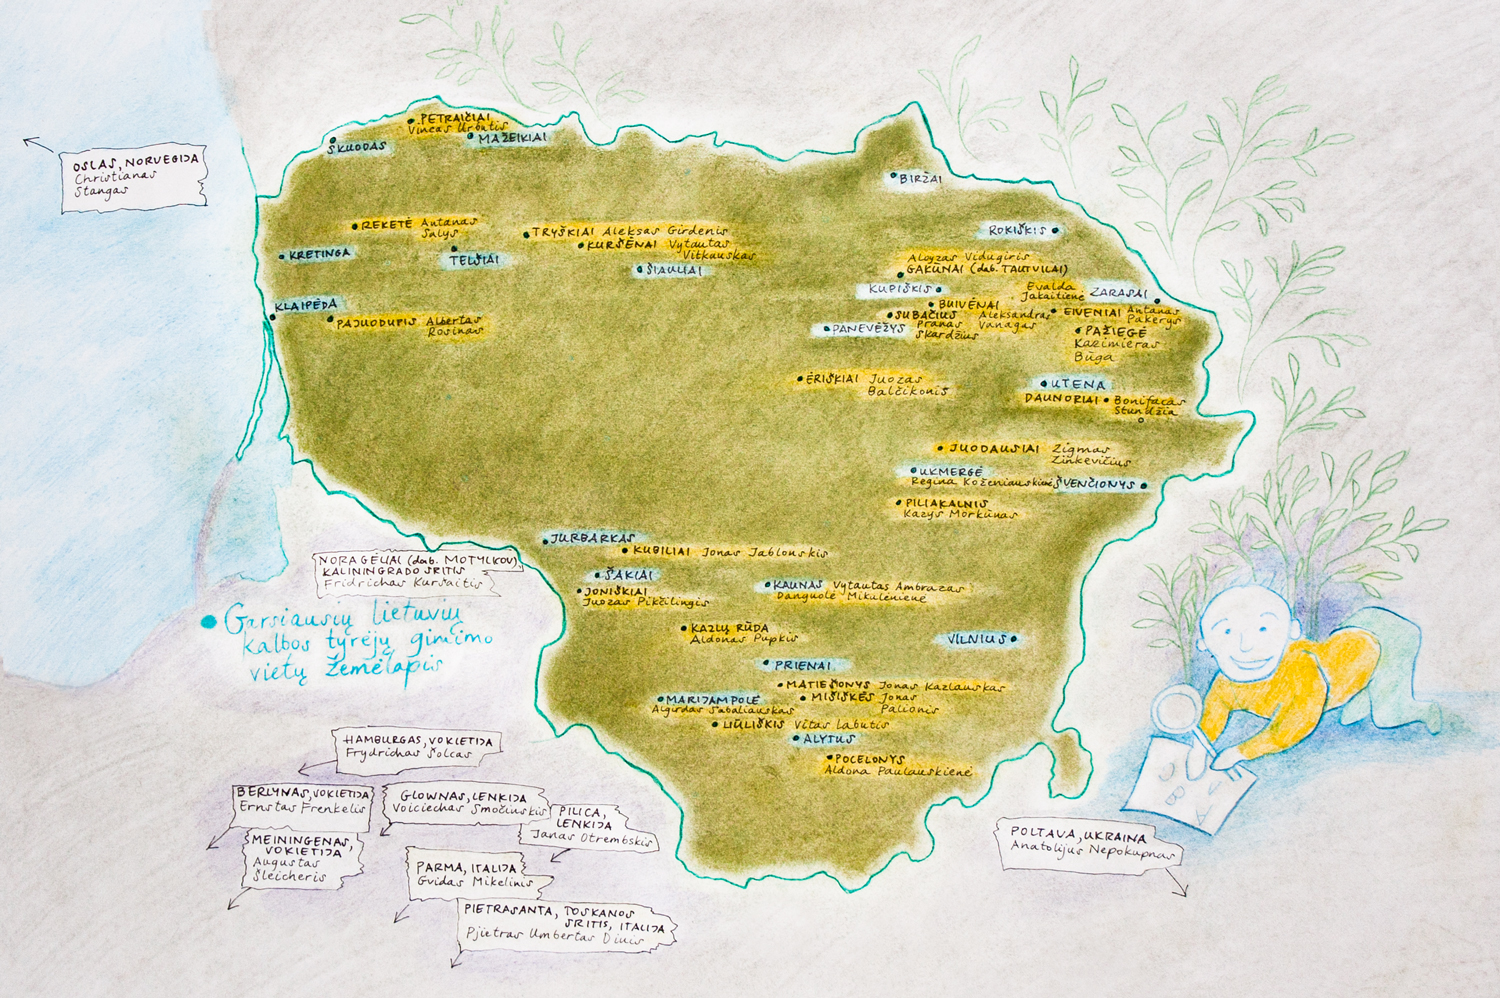 PETRAIČIAI
Vincas Urbutis
MAŽEIKIAI
SKUODAS
OSLAS, NORVEGIJA
Christianas
Stangas
BIRŽAI
REKETĖ Antanas
Salys
TRYŠKIAI Aleksas Girdenis
KURŠĖNAI Vytautas
Vitkauskas
ROKIŠKIS
KRETINGA
TELŠIAI
ŠIAULIAI
Aloyzas Vidugiris
GAKŪNAI (dab. TAUTVILAI)
KUPIŠKIS
Evalda
Jakaitienė
ZARASAI
KLAIPĖDA
PAJUODUPIS Albertas
Rosinas
BUIVĖNAI
Aleksandras
Vanagas
EIVENIAI Antanas
Pakerys
SUBAČIUS
Pranas
Skardžius
PANEVĖŽYS
PAŽIEGĖ
Kazimieras
Būga
ĖRIŠKIAI Juozas
Balčikonis
UTENA
DAUNORIAI Bonifacas
Stundžia
JUODAUSIAI Zigmas
Zinkevičius
UKMERGĖ
Regina Koženiauskienė
ŠVENČIONYS
PILIAKALNIS
Kazys Morkūnas
JURBARKAS
KUBILIAI Jonas Jablonskis
NORAGĖLIAI (dab. MOTYLKOV),
KALININGRADO SRITIS
Fridrichas Kuršaitis
ŠAKIAI
JONIŠKIAI
Juozas Pikčilingis
KAUNAS Vytautas Ambrazas
Danguolė Mikulėnienė
Garsiausių lietuvių
kalbos tyrėjų gimimo
vietų žemėlapis
KAZLŲ RŪDA
Aldonas Pupkis
VILNIUS
PRIENAI
MATIEŠIONYS Jonas Kazlauskas
MIŠIŠKĖS Jonas
Palionis
MARIJAMPOLĖ
Algirdas Sabaliauskas
LIŪLIŠKIS Vitas Labutis
ALYTUS
POCELONYS
Aldona Paulauskienė
HAMBURGAS, VOKIETIJA
Frydrichas Šolcas
BERLYNAS, VOKIETIJA
Ernstas Frenkelis
GLOWNAS, LENKIJA
Voiciechas Smočinskis
PILICA,
LENKIJA
Janas Otrembskis
MEININGENAS,
VOKIETIJA
Augustas
Šleicheris
PARMA, ITALIJA
Gvidas Mikelinis
PIETRASANTA, TOSKANOS
SRITIS, ITALIJA
Pjietras Umbertas Dinis
POLTAVA, UKRAINA
Anatolijus Nepokupnas